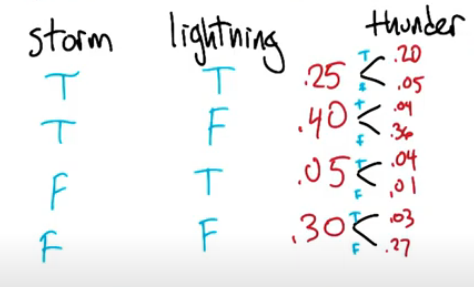 storm lightning thunder
T T .25 T .20
F .05
T F .40 T .04
F .36
F T .05 T .04
F .01
F F .30 T .03
F .27